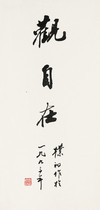 觀自在
樸初作於
一九八
年